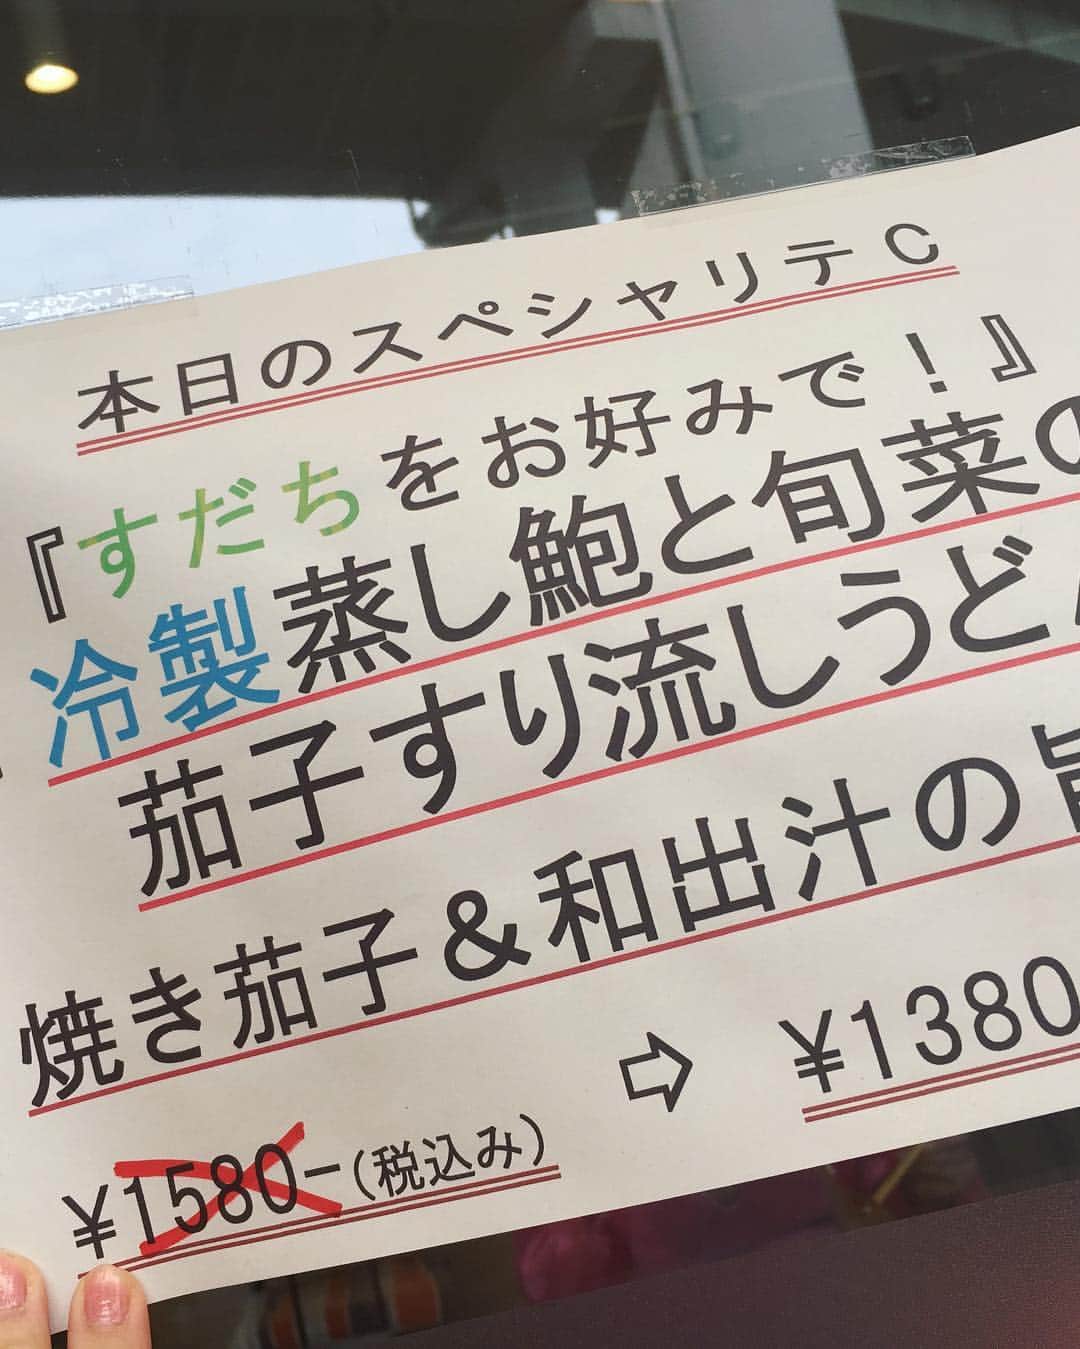 本日のスペシャリテC
『すだちをお好みで！』
冷製蒸し鮑と旬菜の
茄子すり流しうどん
焼き茄子&和出汁の旨
¥1580-(税込み) ⇨ ¥1380